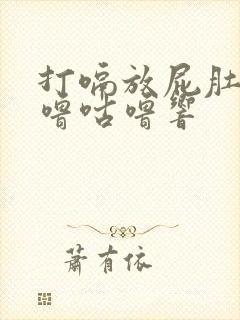 打嗝放屁肚
噜咕噜响
萧有依